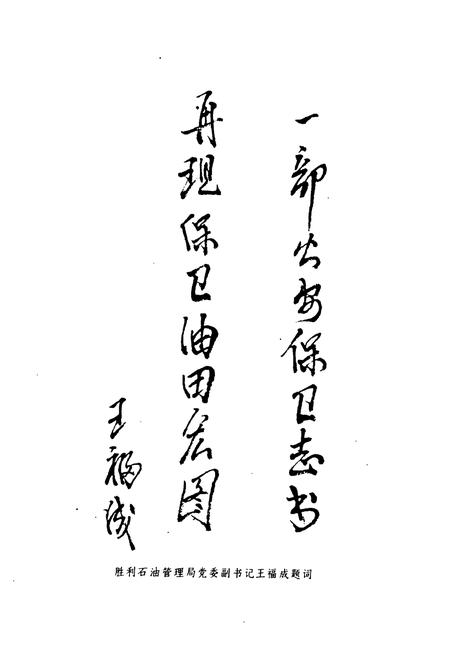 一部公安保卫志书
再现保卫油田宏图
王福成
胜利石油管理局党委副书记王福成题词